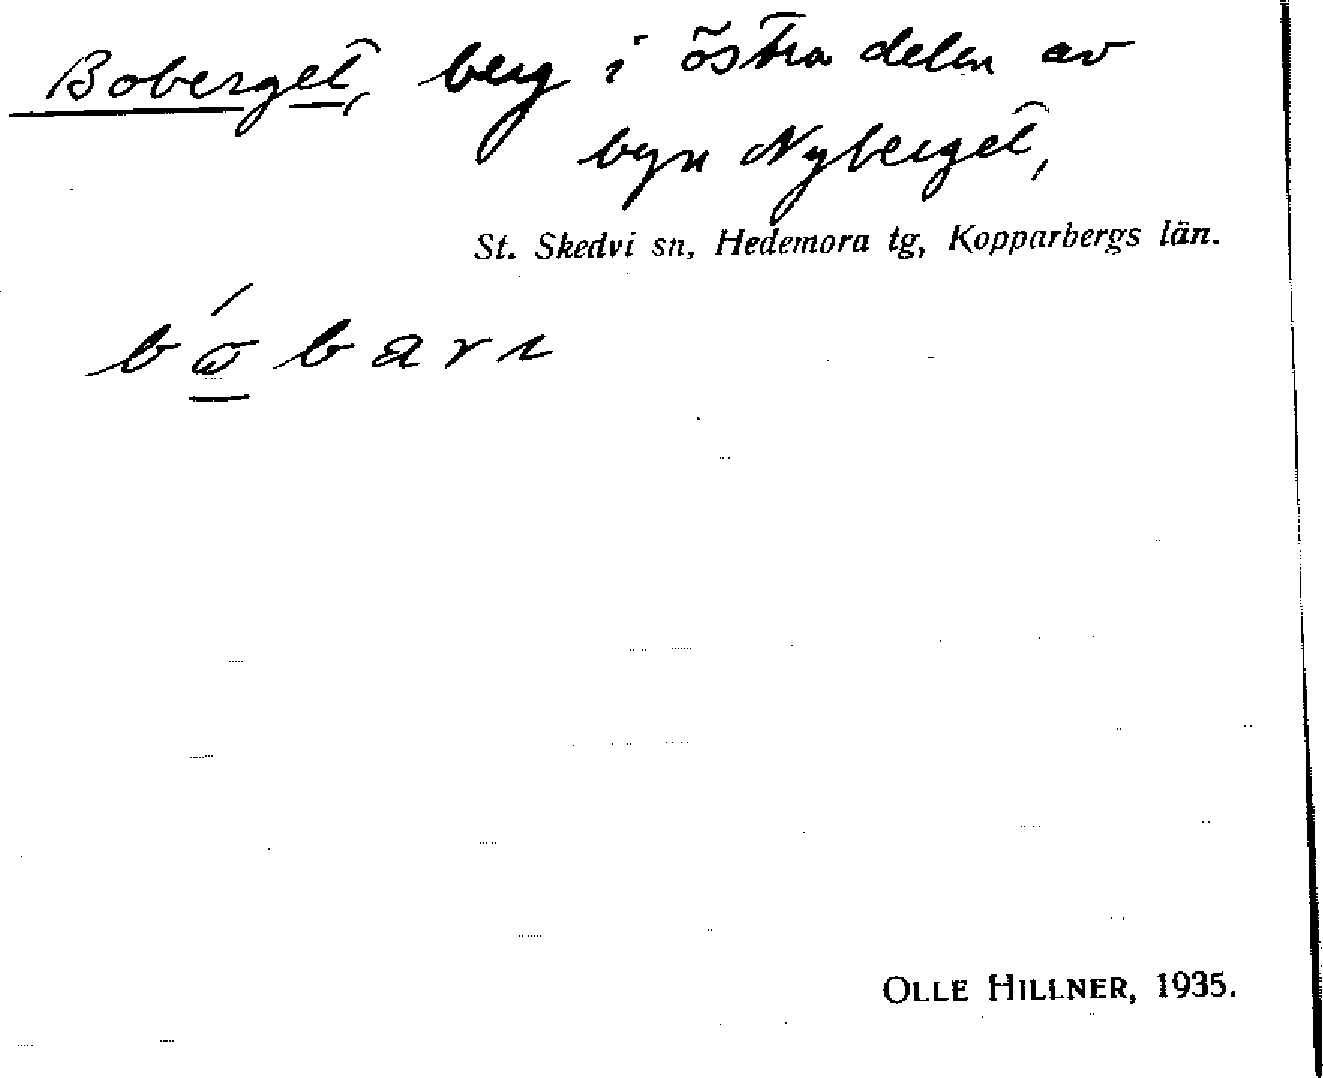 Boberget, berg i östra delen av
byn Nyberget,
St. Skedvi sn, Hedemora tg, Kopparbergs län.
OLLE HILLNER, 1935.